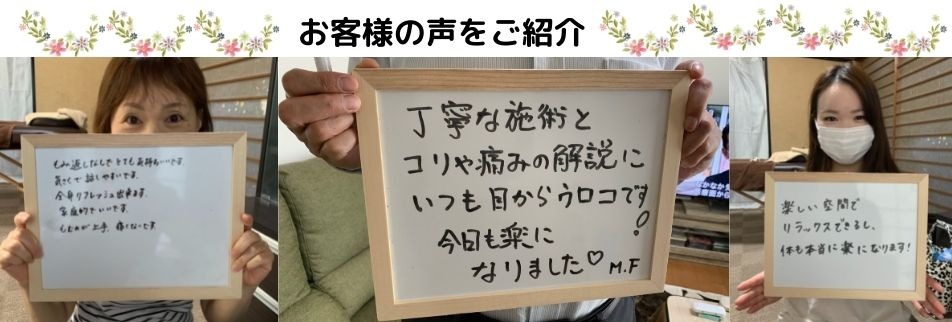 お客様の声をご紹介
もみ返しなしで とても気持ちいいです。
気さくで 話しやすいです。
全身リフレッシュ出来ます。
家庭的でいいです。
もむのが上手。痛くないです。
丁寧な施術と
コリや痛みの解説に
いつも目からウロコです!
今日も楽に
なりました♡ M.F
楽しい空間で
リラックスできるし、
体も本当に楽になります!